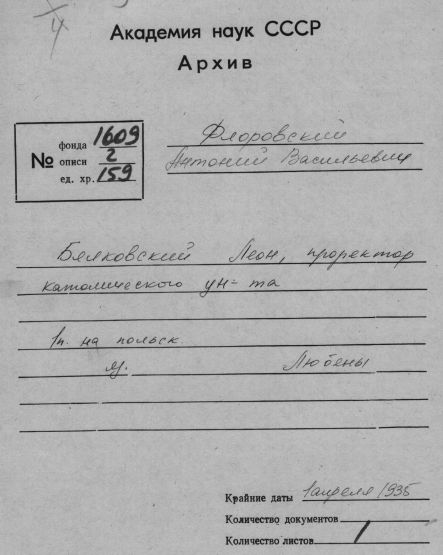 Академия наук СССР
Архив
№ фонда 1609
описи 2
ед. хр. 159
Флоровский
Антоний Васильевич
Бялковский Леон, проректор
католического ун-та
1п. на польск.
м. Любены
Крайние даты 1 апреля 1935
Количество документов
Количество листов 1